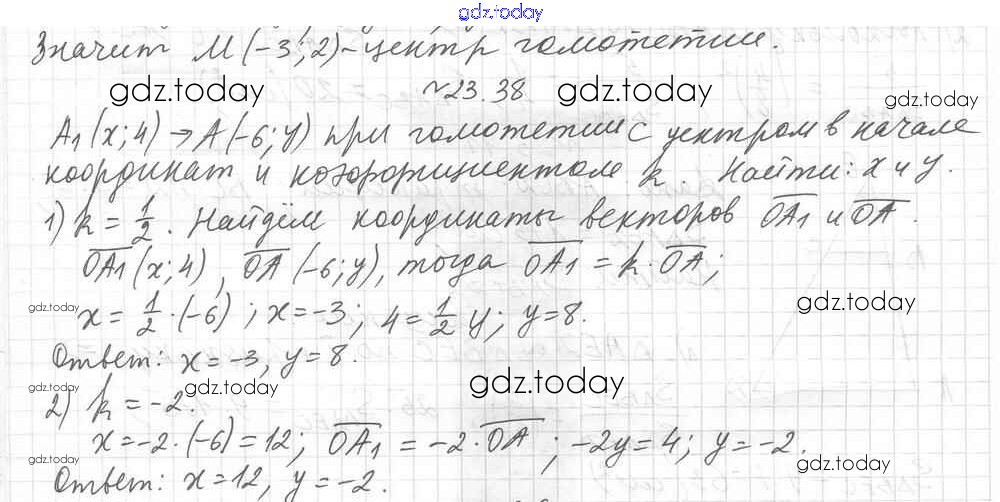 gdz.today
Значит M(-3; 2) - центр гомотетии.
gdz.today №23.38 gdz.today
gdz.today
A₁(x; 4) → A(-6; y) при гомотетии с центром в начале
координат и коэффициентом k. Найти: x и y.
1) k = 1/2. Найдём координаты векторов OA₁ и OA.
OA₁(x; 4), OA(-6; y), тогда OA₁ = k · OA;
gdz.today gdz.today
x = 1/2 · (-6); x = -3; 4 = 1/2 y; y = 8.
Ответ: x = -3, y = 8.
gdz.today gdz.today gdz.today
2) k = -2.
x = -2 · (-6) = 12; OA₁ = -2 · OA; -2y = 4; y = -2.
gdz.today gdz.today
Ответ: x = 12, y = -2.